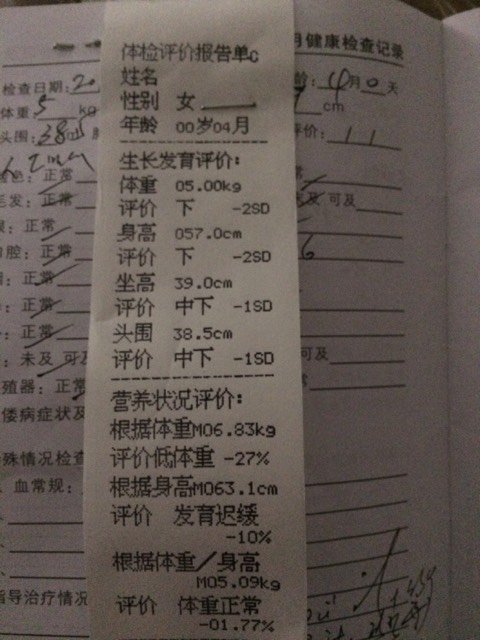 体检评价报告单C
姓名
性别 女
年龄 00岁04月
生长发育评价:
体重 05.00kg
评价 下 -2SD
身高 057.0cm
评价 下 -2SD
坐高 39.0cm
评价 中下 -1SD
头围 38.5cm
评价 中下 -1SD
营养状况评价:
根据体重M06.83kg
评价低体重 -27%
根据身高M063.1cm
评价 发育迟缓
-10%
根据体重/身高
M05.09kg
评价 体重正常
-01.77%
月健康检查记录
检查日期: 20
龄: 4月0天
体重 5 kg
cm
头围: 38.5
评价:
色: 正常
毛发: 正常
未及 可及
眼: 正常
腔: 正常
正常
正常
正常
: 未及 可及
可及
殖器: 正常
偻病症状及
殊情况检查
血常规:
指导治疗情况